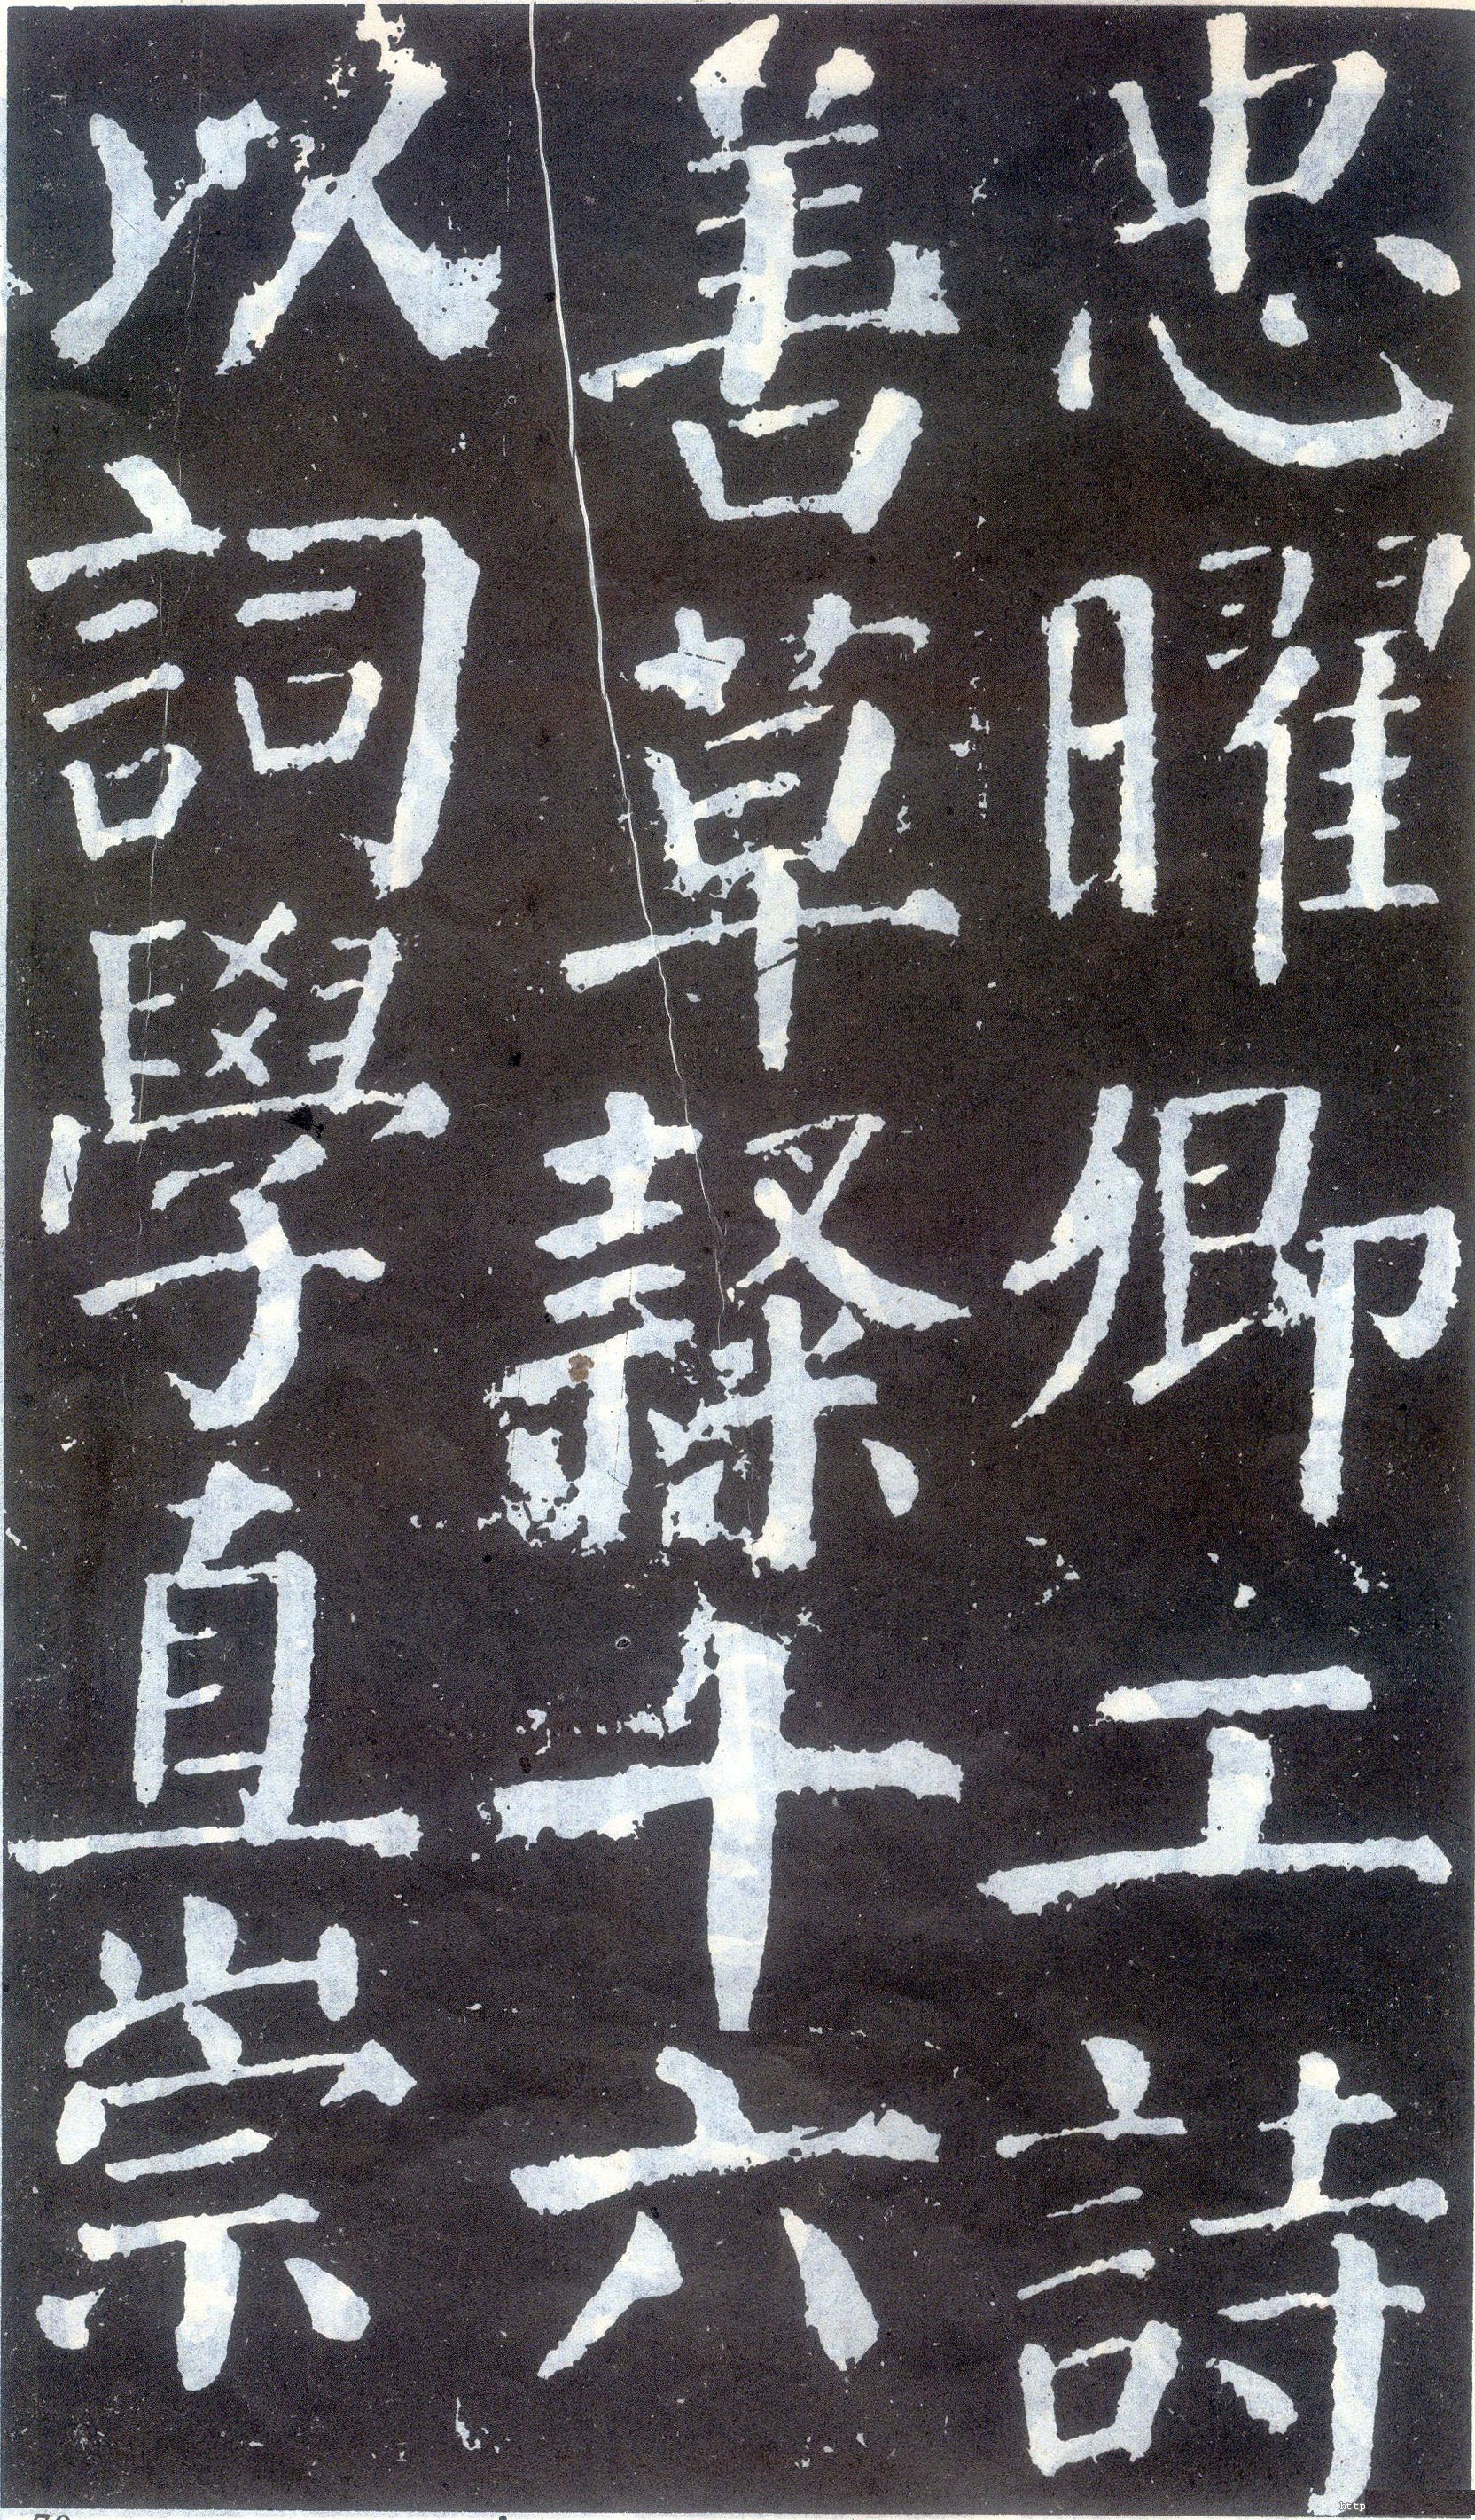 忠曜卿工詩
善草隸十六
以詞學直崇
70
http